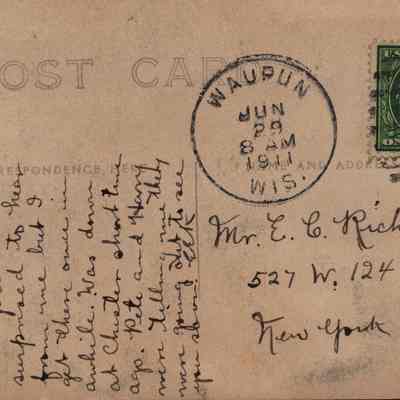 OST CAR
RESPONDENCE HERE
NAME AND ADDRE
WAUPUN
JUN
29
8 AM
1911
WIS.
surprised to hea
from me but I
get there once in
awhile. Was down
at Chester short time
ago. Pete and Harry
were telling me they
were going out to see
you soon. EEK
Mr. E. C. Rich
527 W. 124
New York